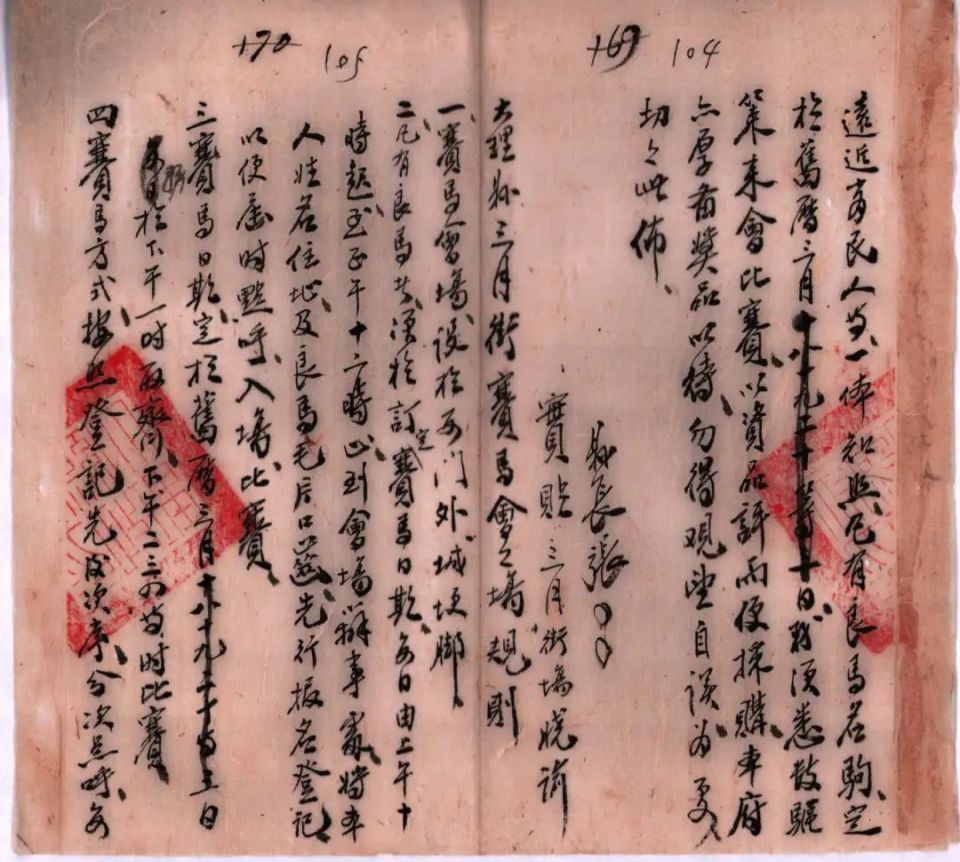 170 105 169 104
遠近商民人等一体知照凡有良馬名駒定
於舊曆三月十八十九二十等日務須悉數驅
策來會比賽以資品評而便採購本府
亦厚备獎品以待勿得观望自误为要
切之此佈
縣長張
實貼三月街場曉諭
大理縣三月街賽馬會之場規則
一賽馬會場設於西门外城埂脚
二凡有良馬者須於訂定賽馬日期每日由上午十
時起至正午十二時止到會場辦事處將本
人姓名住址及良馬毛片口齒先行报名登記
以便屆時點呼入場比賽
三賽馬日期定於舊曆三月十八十九二十等三日
每日於下午一時取齊下午二三四等時比賽
四賽馬方式按照登記先後次序分次点呼每